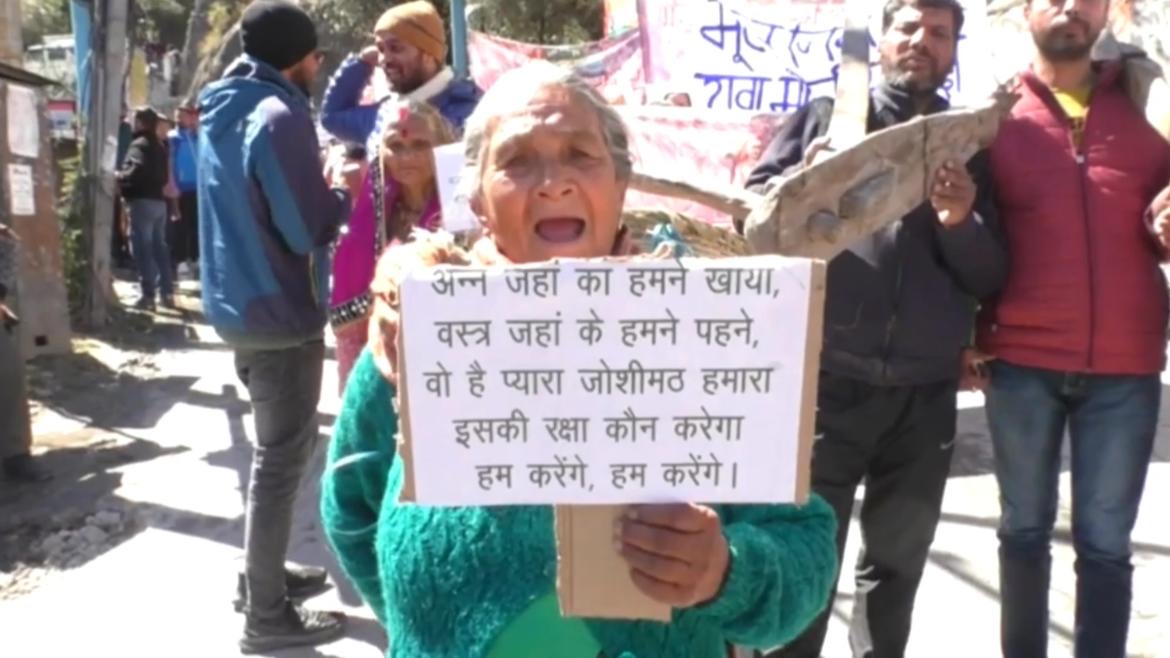 मूल
अन्न जहां का हमने खाया,
वस्त्र जहां के हमने पहने,
वो है प्यारा जोशीमठ हमारा
इसकी रक्षा कौन करेगा
हम करेंगे, हम करेंगे।